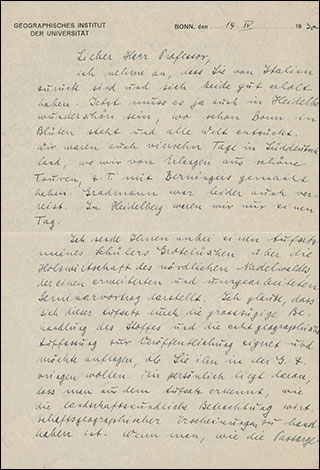 GEOGRAPHISCHES INSTITUT
DER UNIVERSITÄT
BONN, den 14 IV 1930
Lieber Herr Professor,
ich nehme an, dass Sie von Italien
zurück sind und sich beide gut erholt
haben. Jetzt muss es ja auch in Heidelbg
wunderschön sein, wo schon Bonn in
Blüten steht und alle Welt entzückt.
Wir waren auch vierzehn Tage in Süddeutsch
land, wo wir von Erlangen aus schöne
Touren, z. T. mit Berningers gemacht
haben. Gradmann war leider auch ver-
reist. In Heidelberg waren wir nur einen
Tag.
Ich sende Ihnen anbei einen Aufsatz
meines Schülers Grotelüschen über die
Holzwirtschaft des nördlichen Nadelwalds,
der einen erweiterten und umgearbeiteten
Seminarvortrag darstellt. Ich glaube, dass
sich dieser Aufsatz durch die grosszügige Be-
handlung des Stoffes und die echt geographische
Auffassung zur Veröffentlichung eignet und
möchte anfragen, ob Sie ihn in der G. Z.
bringen wollen. Mir persönlich liegt daran,
dass man aus dem Aufsatz erkennt, wie
die landschaftskundliche Betrachtung wirt-
schaftsgeographischer Erscheinungen zu hand
haben ist. Wenn man, wie die Passarge